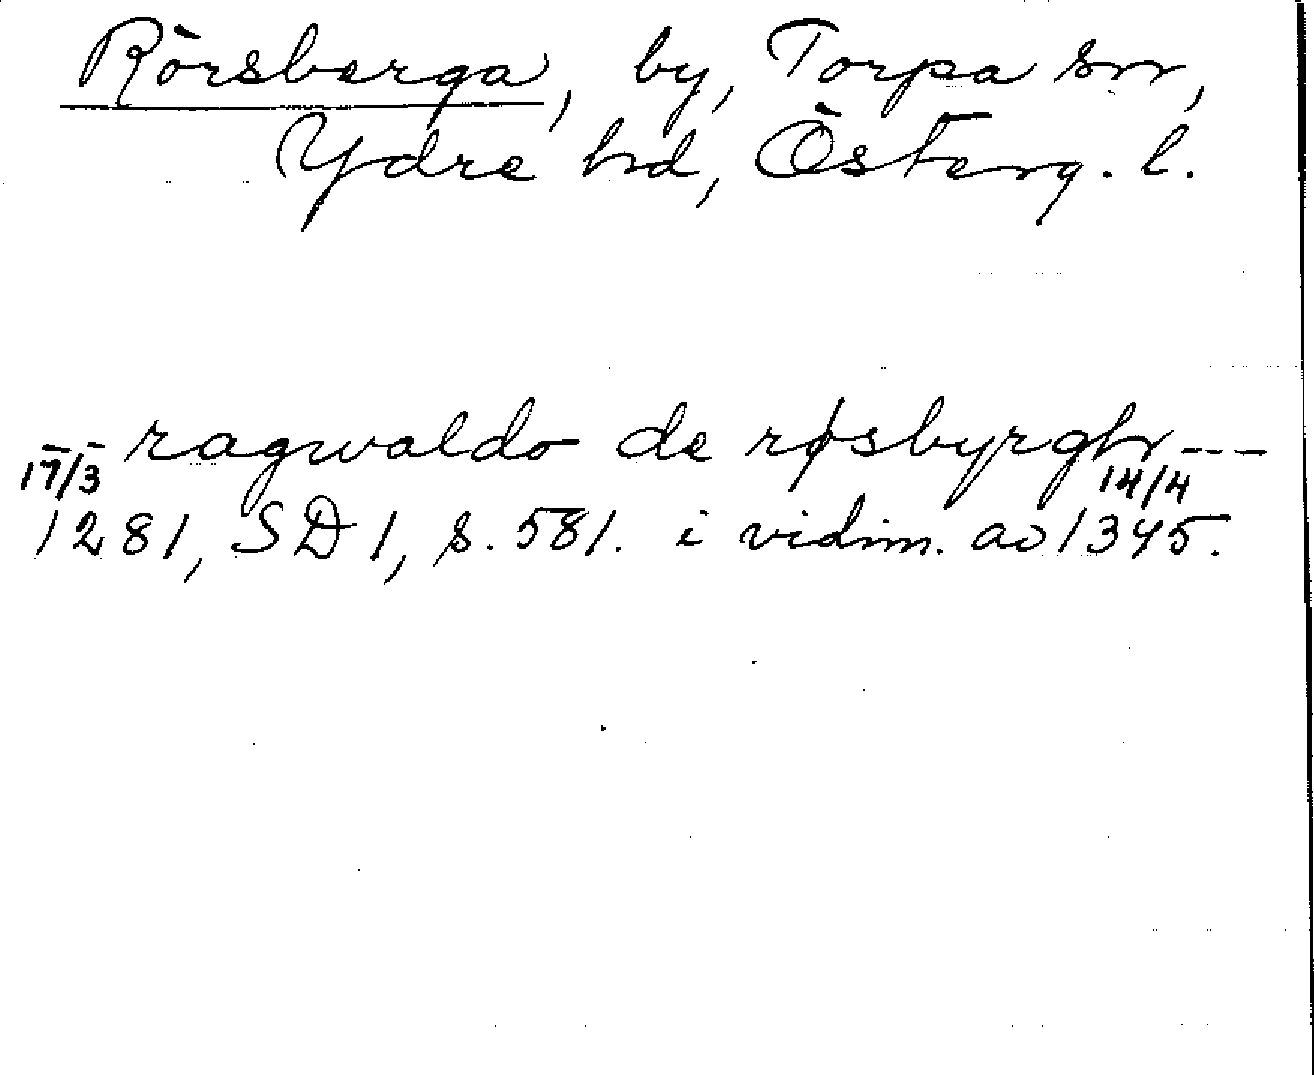 Rörsberga, by, Torpa sn,
Ydre hd, Österg. l.
ragwaldo de røsbyrgh ---
17/3 14/4
1281, SD 1, s. 581. i vidim. av 1345.